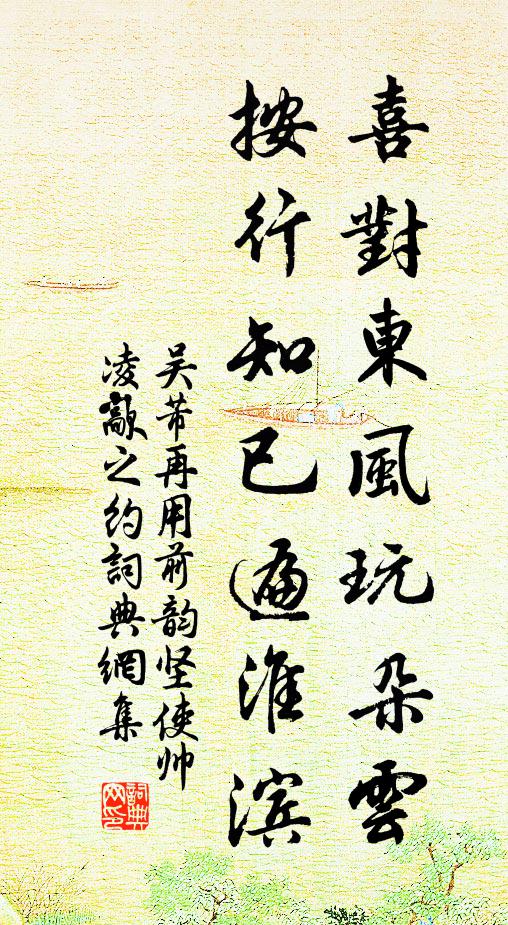 喜對東風玩朵雲
按行知已遍淮滨
吴芾再用前韵坚使帅
凌歊之约詞典網集
詞典网印